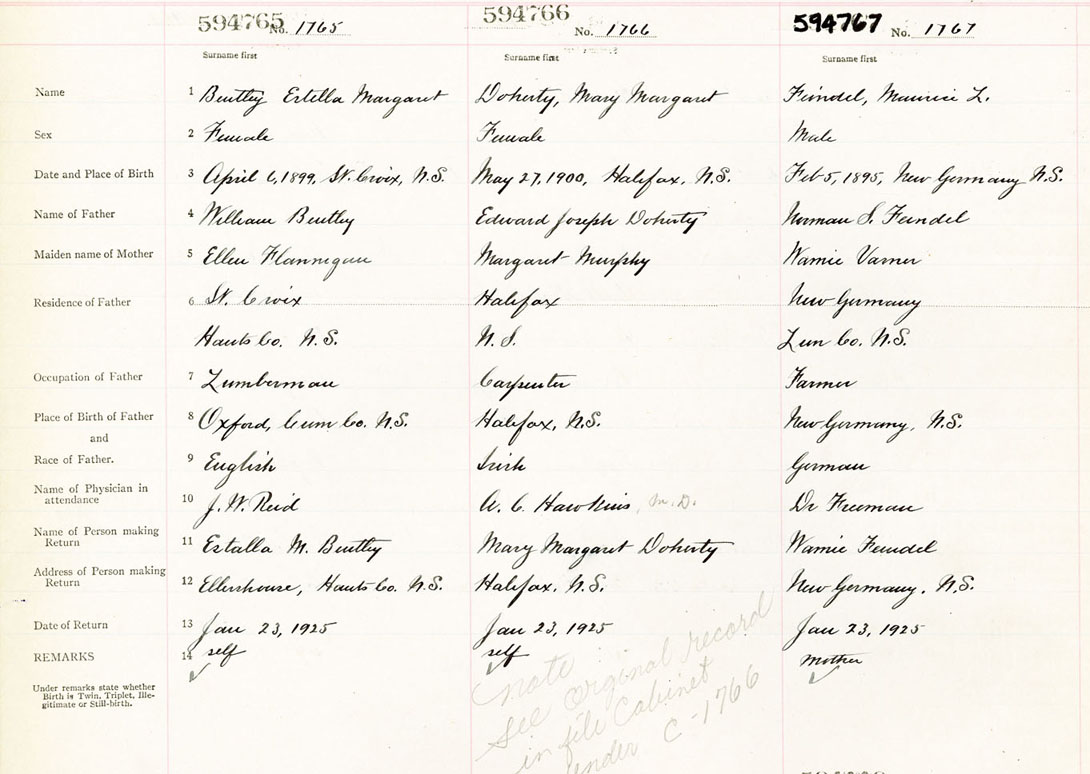 594765 No. 1765 594766 No. 1766 594767 No. 1767
Surname first Surname first Surname first
Name 1 Bentley Estella Margaret Doherty, Mary Margaret Feindel, Maurice L.
Sex 2 Female Female Male
Date and Place of Birth 3 April 6, 1899, St. Croix, N.S. May 27, 1900, Halifax, N.S. Feb 5, 1895, New Germany N.S.
Name of Father 4 William Bentley Edward Joseph Doherty Norman S. Feindel
Maiden name of Mother 5 Ellen Flannegan Margaret Murphy Wamie Varner
Residence of Father 6 St. Croix Halifax New Germany
Hants Co. N.S. N.S. Lun Co. N.S.
Occupation of Father 7 Lumberman Carpenter Farmer
Place of Birth of Father 8 Oxford, Cum Co. N.S. Halifax, N.S. New Germany, N.S.
and
Race of Father. 9 English Irish German
Name of Physician in
attendance 10 J. W. Reid A. C. Hawkins, M.D. Dr Freeman
Name of Person making
Return 11 Estalla M. Bentley Mary Margaret Doherty Wamie Feindel
Address of Person making
Return 12 Ellershouse, Hants Co. N.S. Halifax, N.S. New Germany, N.S.
Date of Return 13 Jan 23, 1925 Jan 23, 1925 Jan 23, 1925
REMARKS 14 self self mother
Under remarks state whether
Birth is Twin, Triplet, Ille-
gitimate or Still-birth.
note
see orginal record
in file Cabinet
under C-1766